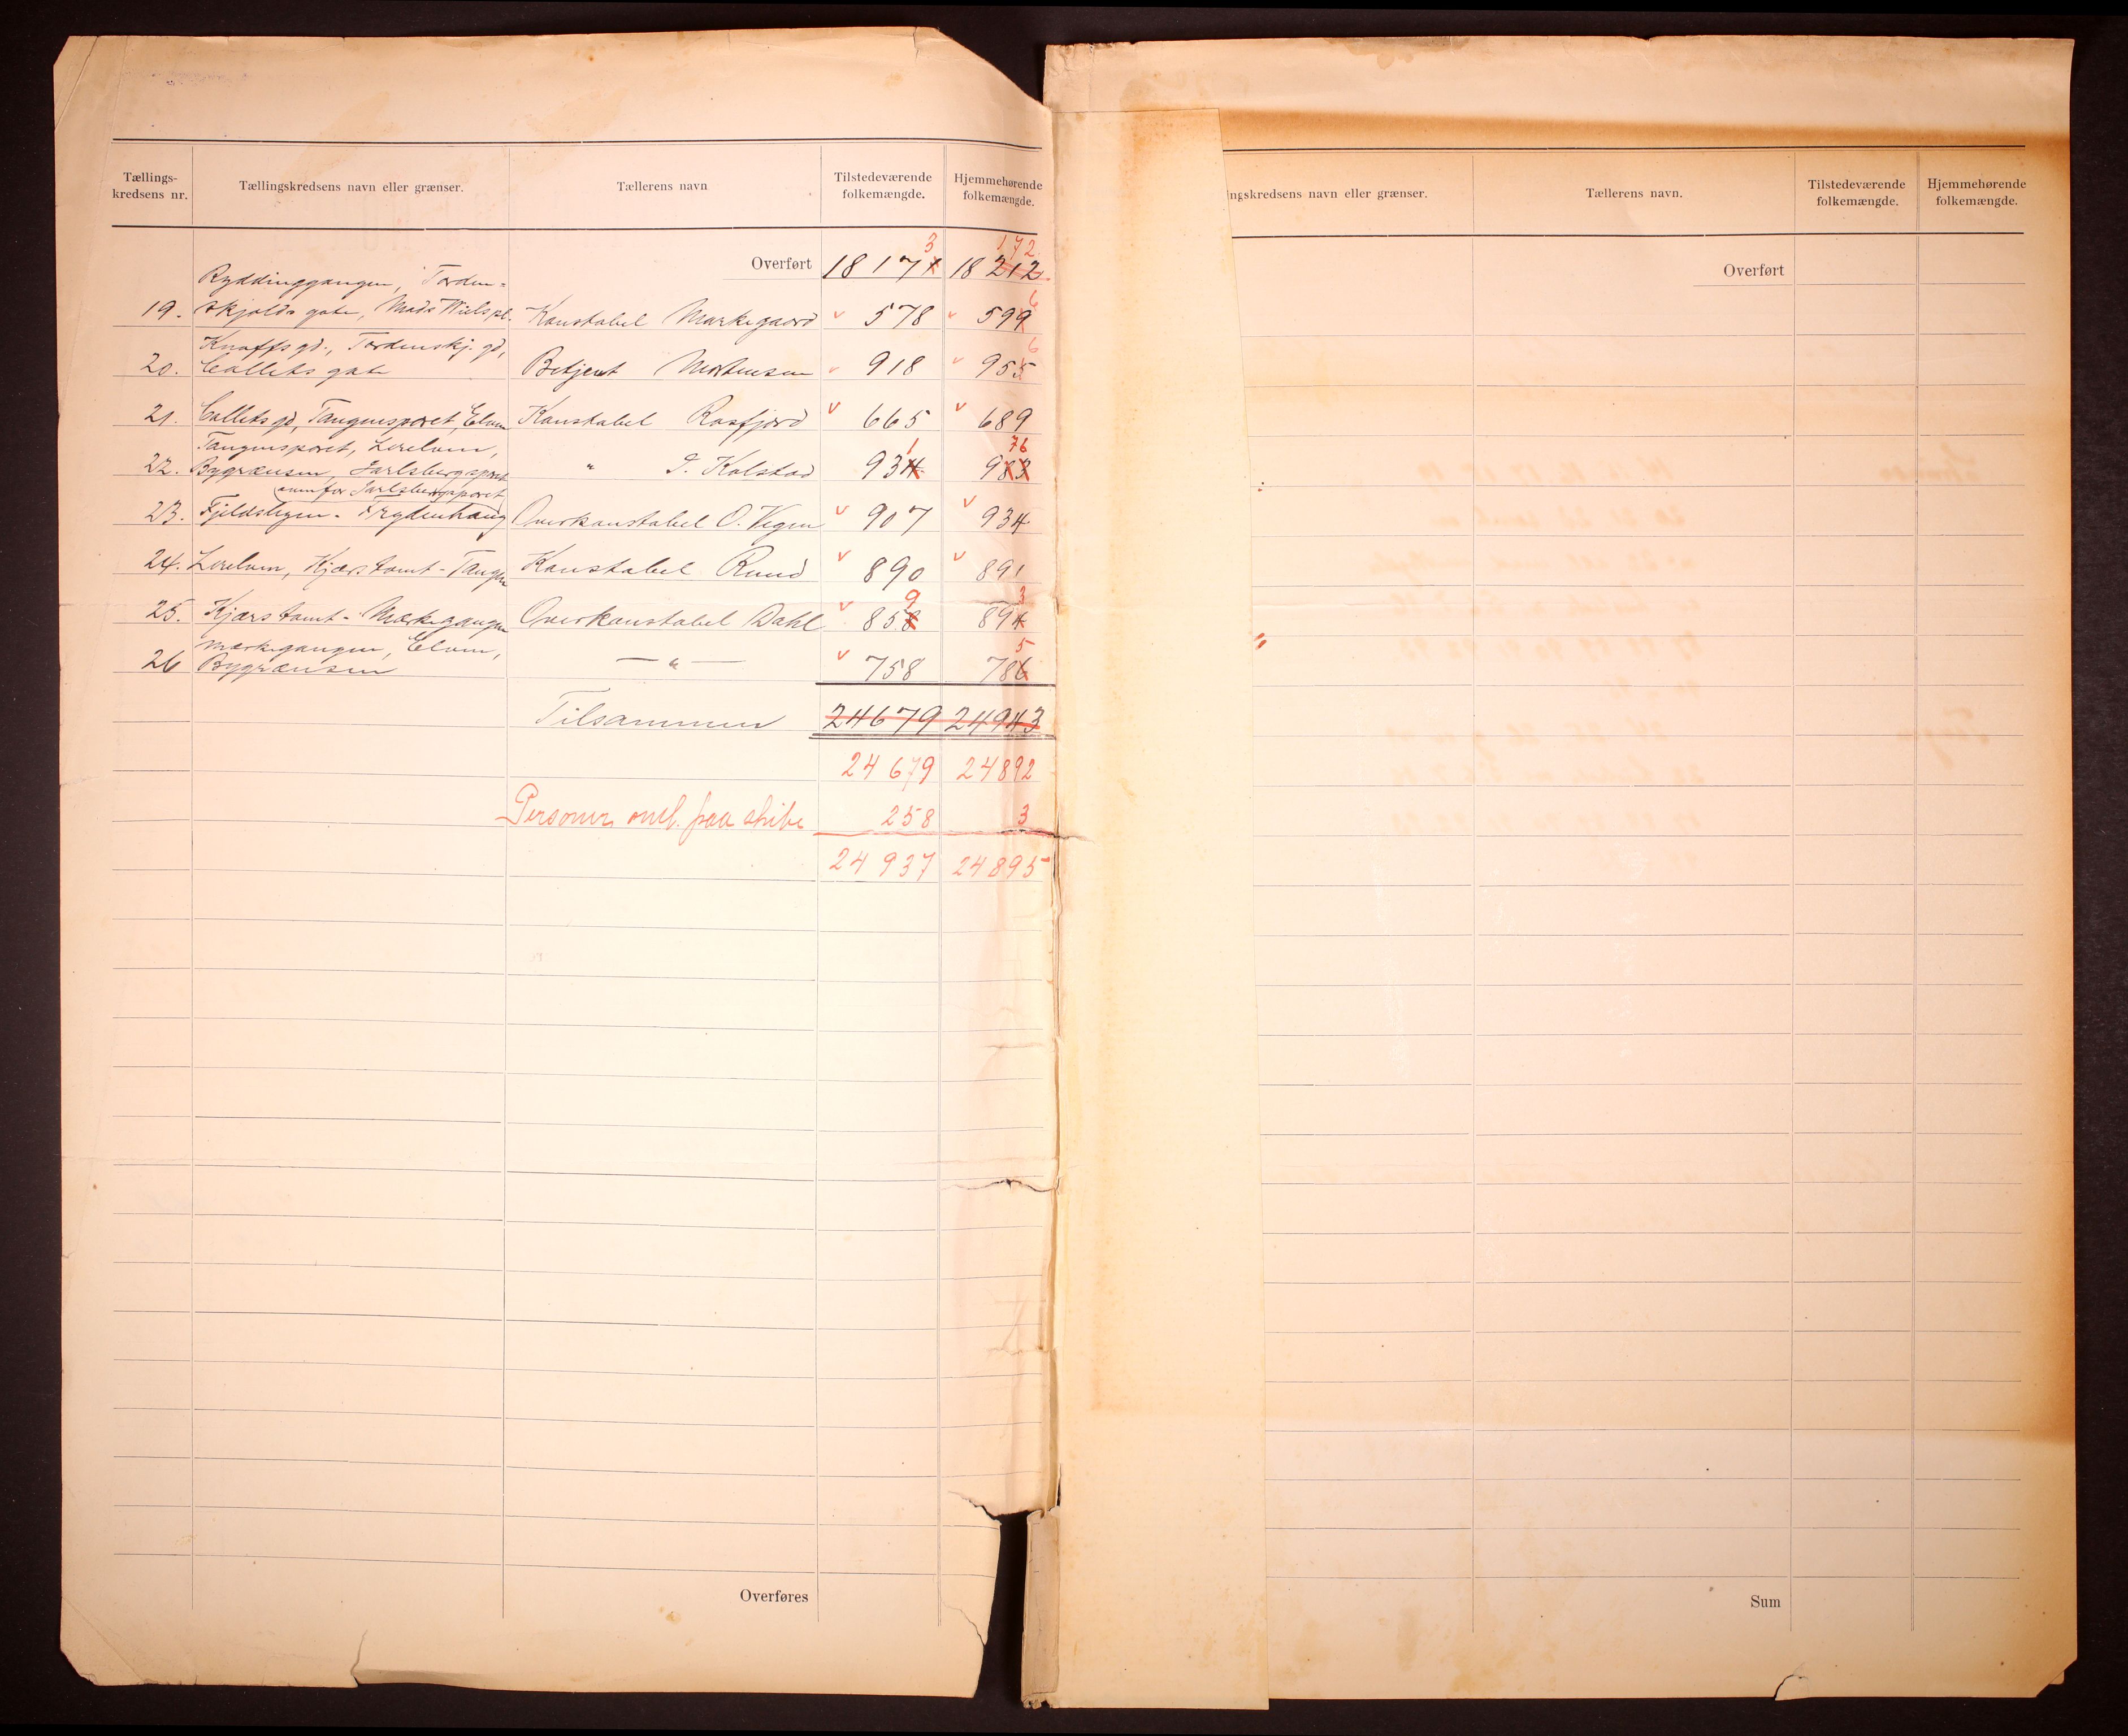 Tællings-
kredsens nr.
Tællingskredsens navn eller grænser.
Tællerens navn
Tilstedeværende
folkemængde.
Hjemmehørende
folkemængde.
3 172.
Overført 18 171 18 212.
Ryddinggangen, Torden=
6
19. skjolds gate, Mads Wiels pl. Konstabel Markegaard v 578 v 599
Knoffs gd., Tordenskj. gd, 6
20. Collets gate Betjent Mortensen v 918 v 955
21. Collets gd, Tangensporet, Elven Konstabel Rosfjord v 665 v 689
Tangensporet, Lerelven, 1 76
22. Bygrænsen, Jarlsbergsporet " I. Kolstad 934 983
ovenfor Jarlsbergsporet
23. Fjeldsbyen - Frydenhaug Overkonstabel O. Vegen v 907 v 934
24. Lerelven, Kjærs tomt - Tangen Konstabel Ruud v 890 v 891
9 3
25. Kjærs tomt - Mærkegangen Overkonstabel Dahl v 858 894
Mærkegangen, Elven, 5
26 Bygrænsen — " — v 758 786
Tilsammen 24679 24943
24 679 24892
Personer omb. paa skibe 258 3
24 937 24895
Overføres
ngskredsens navn eller grænser.
Tællerens navn.
Tilstedeværende
folkemængde.
Hjemmehørende
folkemængde.
Overført
Sum